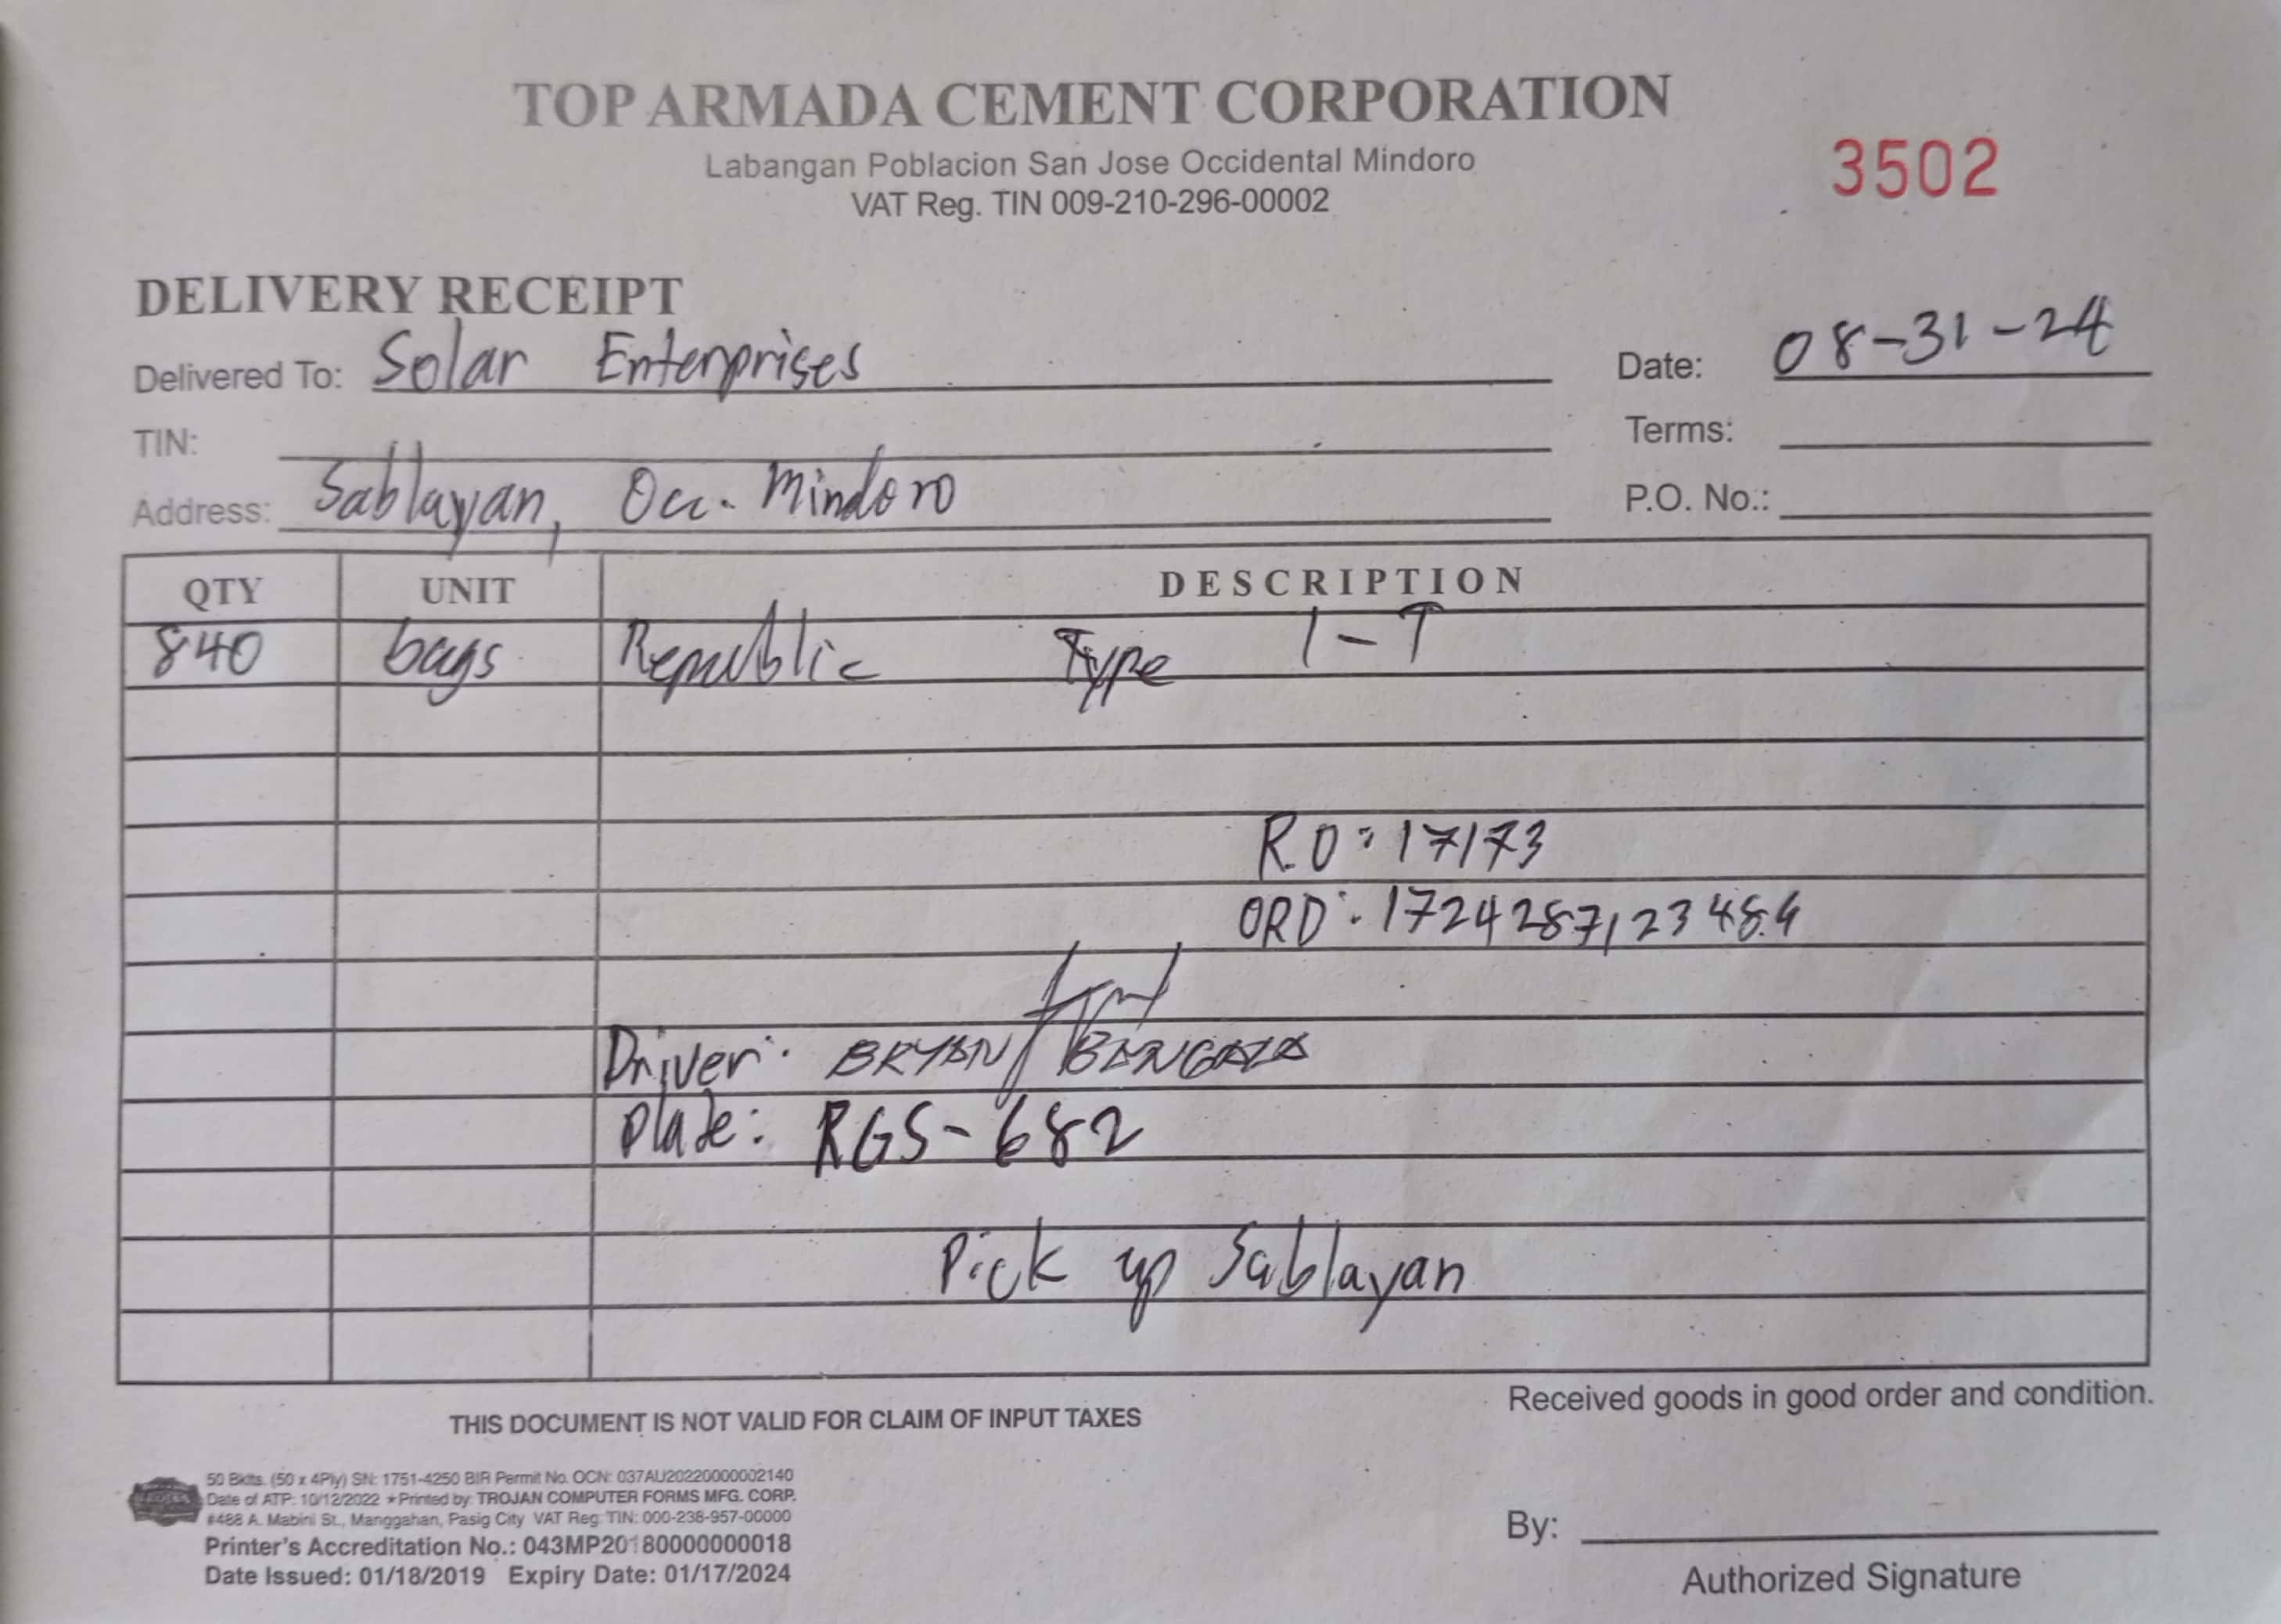 TOP ARMADA CEMENT CORPORATION
Labangan Poblacion San Jose Occidental Mindoro
VAT Reg. TIN 009-210-296-00002
3502
DELIVERY RECEIPT
Delivered To: Solar Enterprises
Date: 08-31-24
TIN:
Terms:
Address: Sablayan, Occ. Mindoro
P.O. No.:
QTY UNIT DESCRIPTION
840 bags Republic Type 1-T
R.O: 17173
ORD: 1724287123484
Driver: BRYAN
Plate: RGS-682
Pick up Sablayan
Received goods in good order and condition.
THIS DOCUMENT IS NOT VALID FOR CLAIM OF INPUT TAXES
50 Bklts. (50 x 4Ply) SN: 1751-4250 BIR Permit No. OCN: 037AU20220000002140
Date of ATP: 10/12/2022 ★Printed by: TROJAN COMPUTER FORMS MFG. CORP.
#488 A. Mabini St., Manggahan, Pasig City VAT Reg. TIN: 000-238-957-00000
Printer's Accreditation No.: 043MP20180000000018
Date Issued: 01/18/2019 Expiry Date: 01/17/2024
By:
Authorized Signature